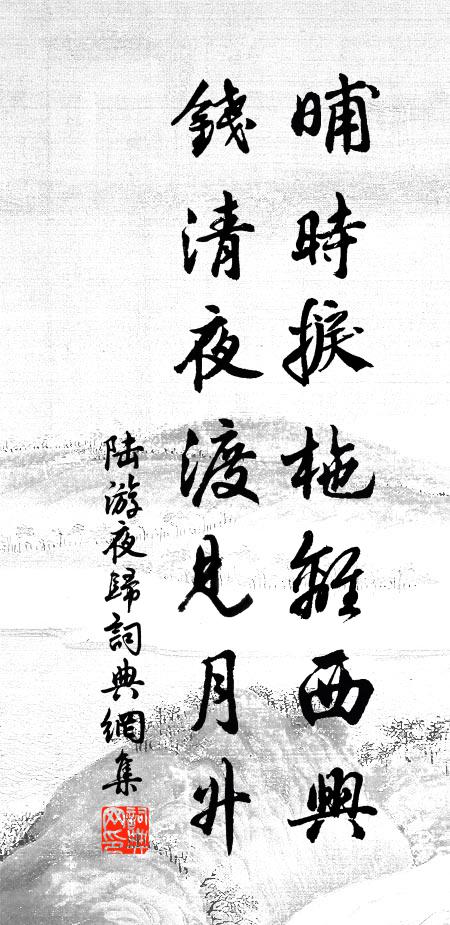 晡時捩柂離西興
錢清夜渡見月升
陸游夜歸詞典網集